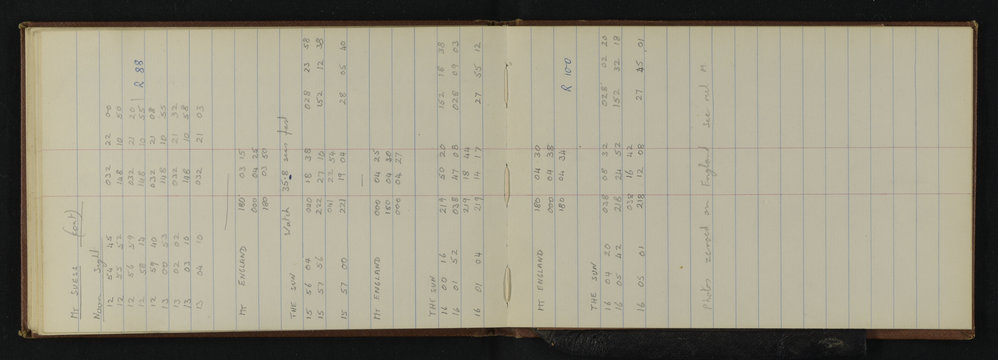 Mt SUESS (cont)
Noon Sight
12 54 45 032 22 00
12 55 52 148 10 50
12 56 59 032 21 20
12 58 148 10 55 R 88
12 59 40 032 21 08
13 00 53 148 10 55
13 02 02 032 21 32
13 03 10 148 10 58
13 04 10 032 21 03
180 03 15
MT ENGLAND 000 04 25
180 03 50
Watch 35.8 secs fast
THE SUN
15 56 04 040 18 38 028 23 58
15 57 56 222 27 10 152 12 38
041 22 54
15 57 00 221 19 04 28 05 40
000 04 25
MT ENGLAND 180 04 30
000 04 27
THE SUN
16 00 16 219 50 20 152 18 38
16 01 52 038 47 08 028 09 03
219 18 44
16 01 04 219 14 17 27 55 12
180 04 30
MT ENGLAND 000 04 38
180 04 34
R 100
THE SUN
16 04 20 038 08 32 028 02 20
16 05 42 218 24 52 152 32 18
038 16 42
16 05 01 218 12 08 27 45 01
Photos zeroed on England see over M.